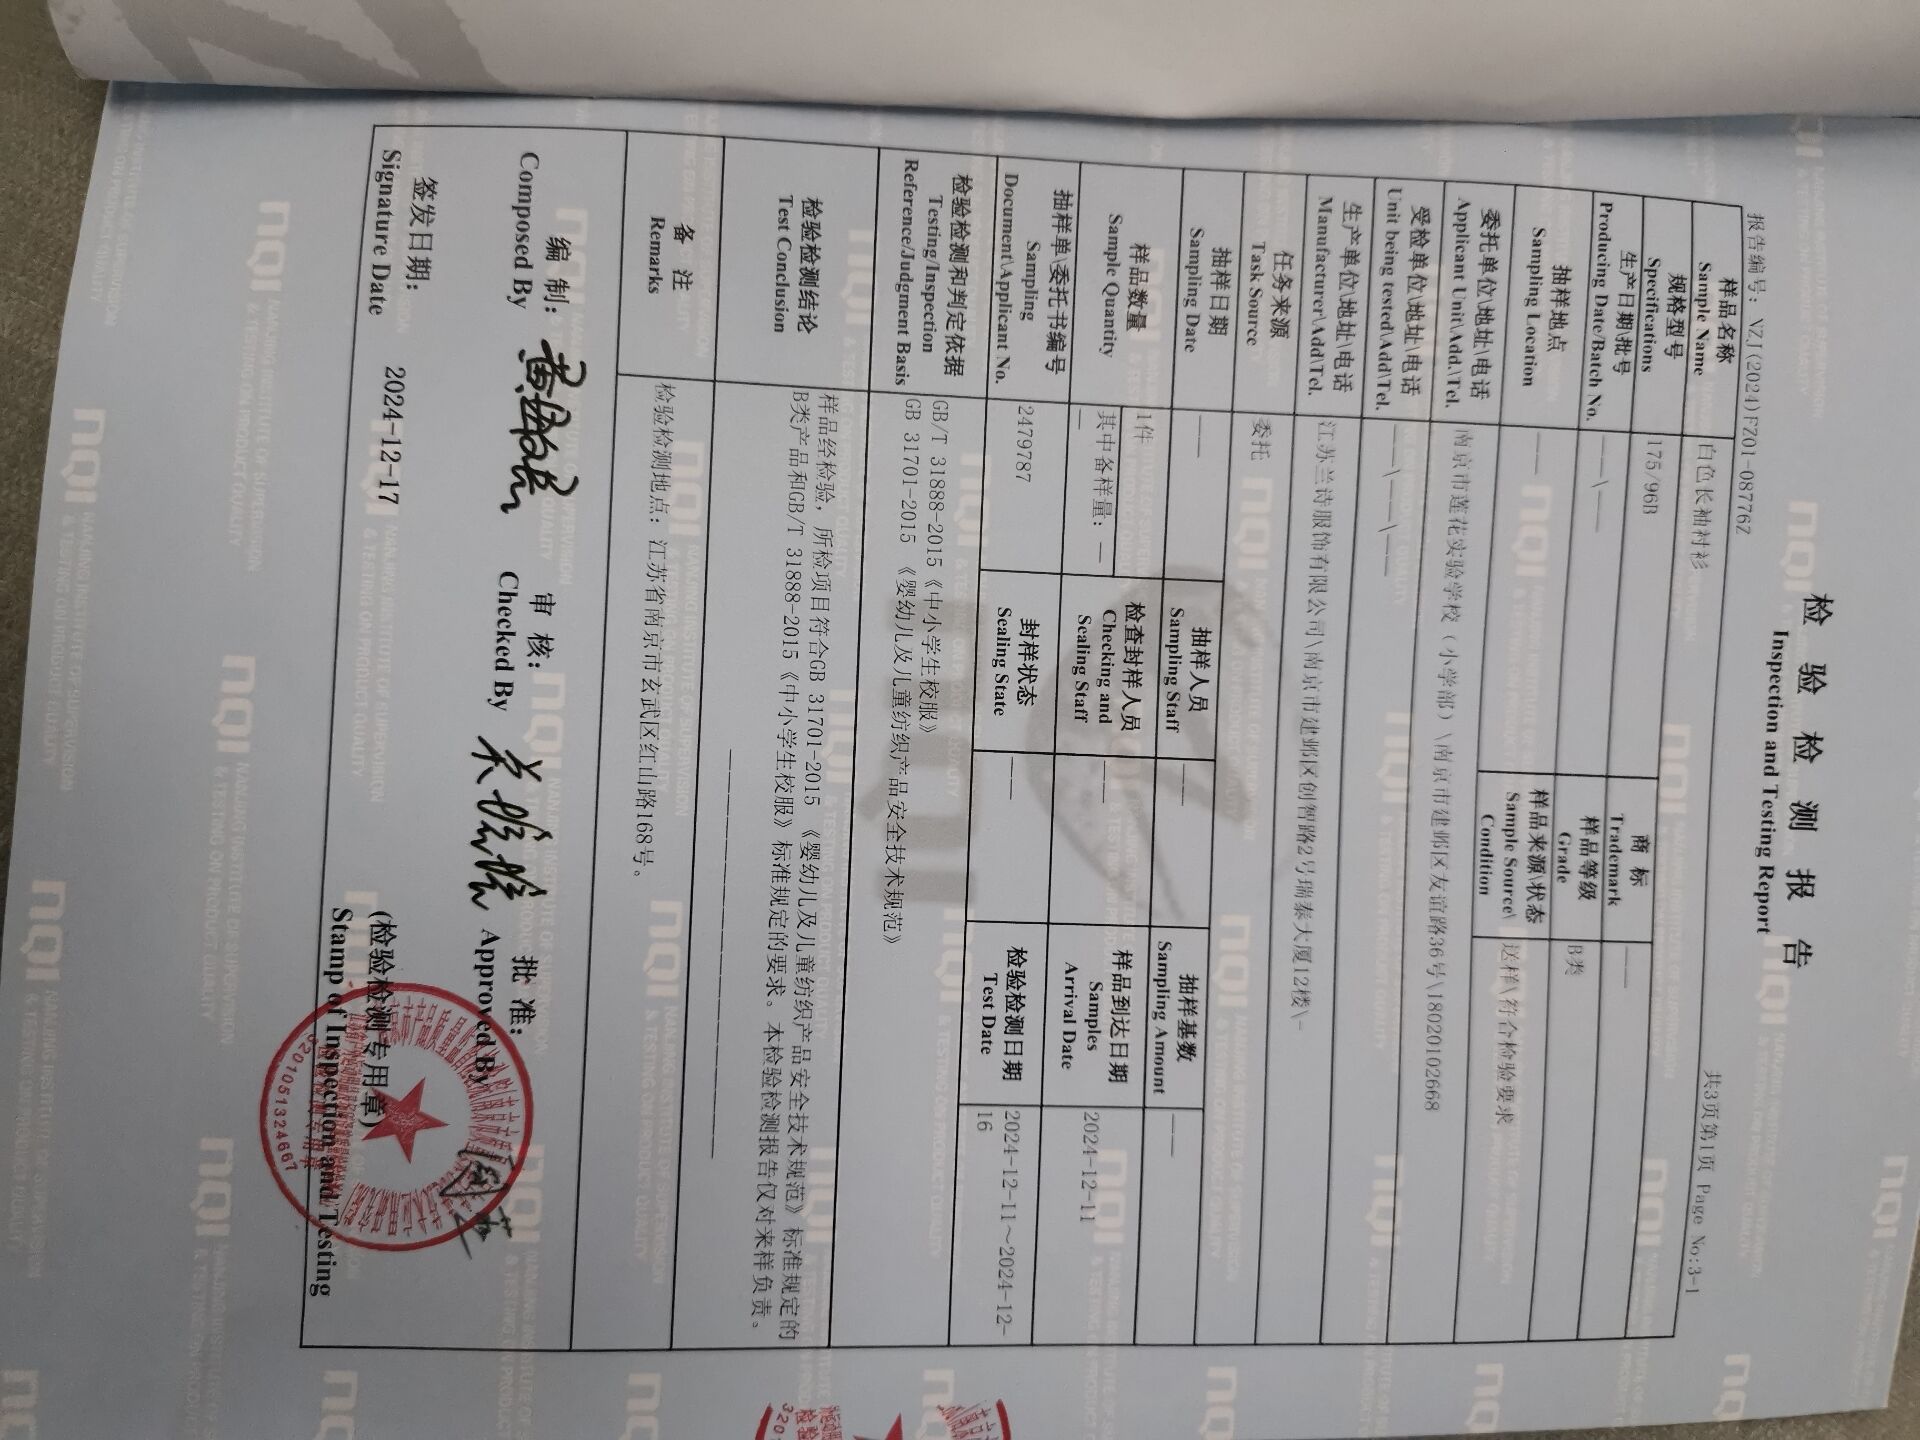 检 验 检 测 报 告
Inspection and Testing Report
报告编号: \ZJ(2024)FZ01-08776Z
共3页第1页 Page No:3-1
样品名称
Sample Name
白色长袖衬衫
规格型号
Specifications
175/96B
商 标
Trademark
——
生产日期\批号
Producing Date/Batch No.
——\——
样品等级
Grade
B类
抽样地点
Sampling Location
——
样品来源\状态
Sample Source\
Condition
送样\符合检验要求
委托单位\地址\电话
Applicant Unit\Add.\Tel.
南京市莲花实验学校(小学部)\南京市建邺区友谊路36号\18020102668
受检单位\地址\电话
Unit being tested\Add\Tel.
——\——\——
生产单位\地址\电话
Manufacturer\Add\Tel.
江苏兰诗服饰有限公司\南京市建邺区创智路2号瑞泰大厦12楼\-
任务来源
Task Source
委托
抽样日期
Sampling Date
——
抽样人员
Sampling Staff
——
抽样基数
Sampling Amount
——
样品数量
Sample Quantity
1件
其中备样量: —
—
检查封样人员
Checking and
Sealing Staff
——
样品到达日期
Samples
Arrival Date
2024-12-11
抽样单\委托书编号
Sampling
Document\Applicant No.
2479787
封样状态
Sealing State
——
检验检测日期
Test Date
2024-12-11～2024-12-
16
检验检测和判定依据
Testing/Inspection
Reference/Judgment Basis
GB/T 31888-2015《中小学生校服》
GB 31701-2015 《婴幼儿及儿童纺织产品安全技术规范》
检验检测结论
Test Conclusion
样品经检验，所检项目符合GB 31701-2015 《婴幼儿及儿童纺织产品安全技术规范》标准规定的
B类产品和GB/T 31888-2015《中小学生校服》标准规定的要求。本检验检测报告仅对来样负责。
备 注
Remarks
检验检测地点: 江苏省南京市玄武区红山路168号。
编 制:
Composed By
审 核:
Checked By
批 准:
Approved By
签发日期:
Signature Date
2024-12-17
(检验检测专用章)
Stamp of Inspection and Testing
3201051324667
NQI
NANJING INSTITUTE OF SUPERVISION
& TESTING ON PRODUCT QUALITY